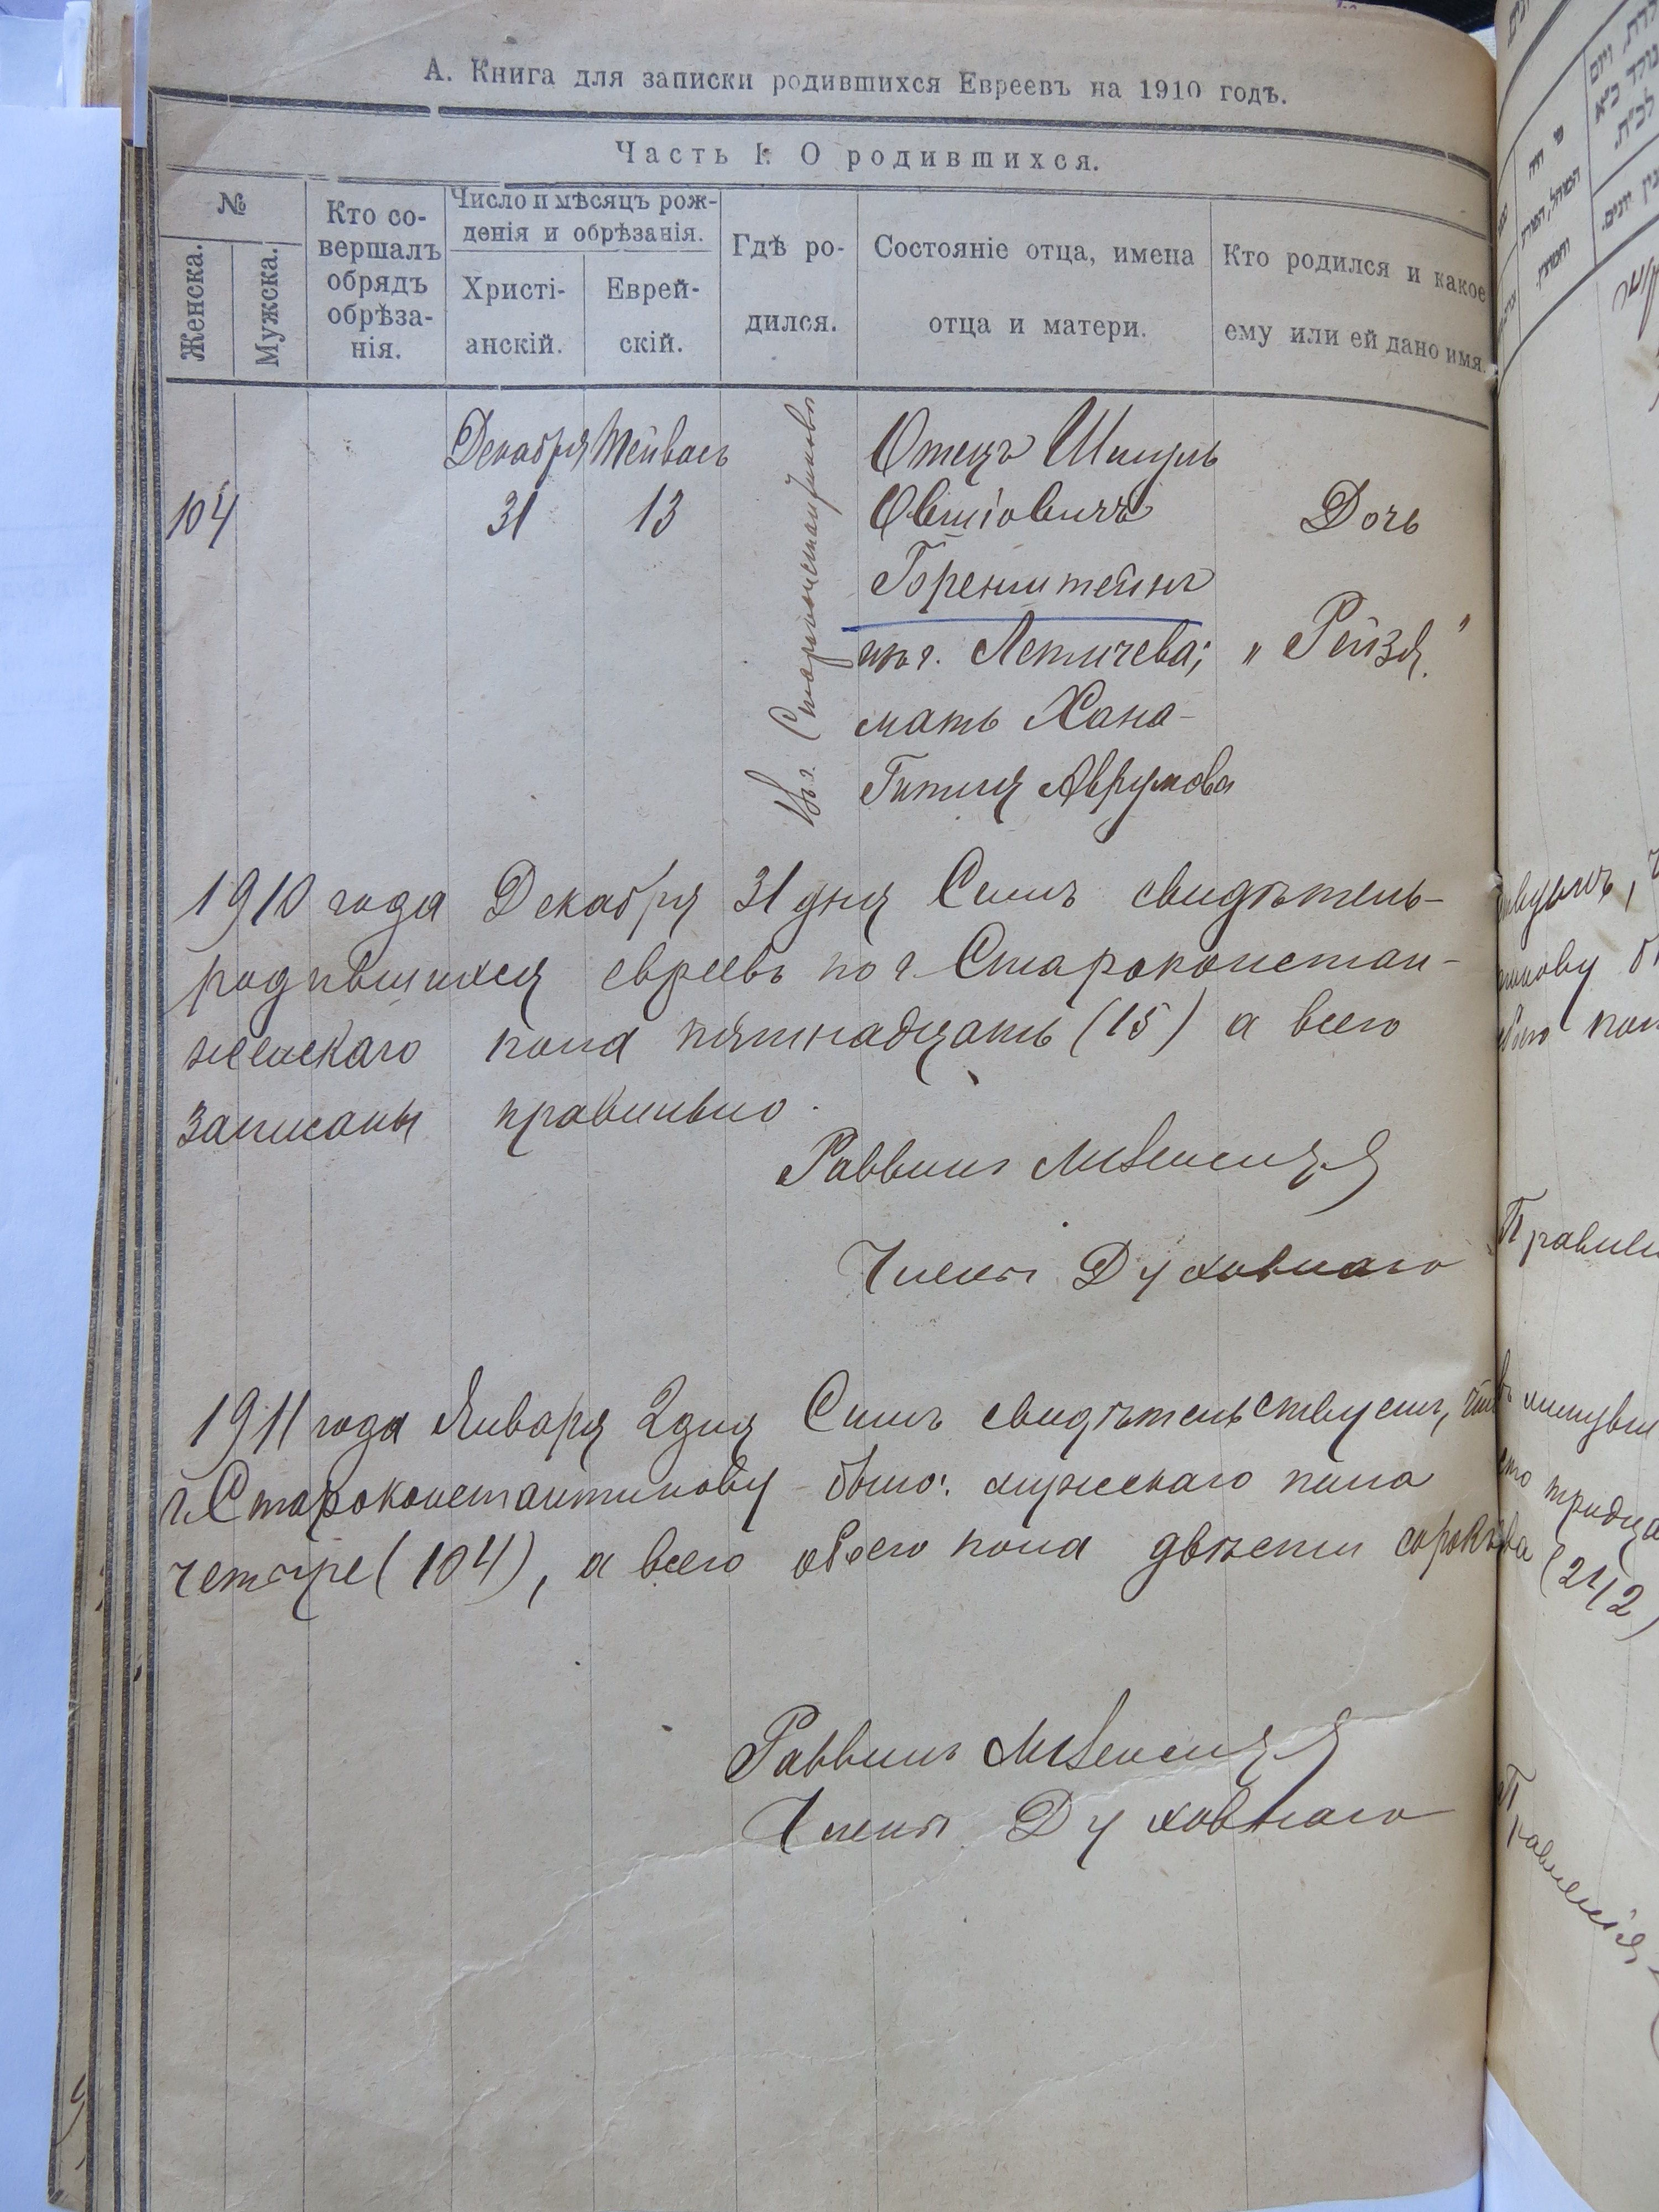 А. Книга для записки родившихся Евреевъ на 1910 годъ.
Часть I. О родившихся.
№
Женска.
Мужска.
Кто со-
вершалъ
обрядъ
обрѣза-
нія.
Число и мѣсяцъ рож-
денія и обрѣзанія.
Христі-
анскій.
Еврей-
скій.
Гдѣ ро-
дился.
Состояніе отца, имена
отца и матери.
Кто родился и какое
ему или ей дано имя.
104
Декабря
31
Тейвась
13
Въ г. Староконстантиновѣ
Отецъ Шмуль
Овшіовичъ
Горенштейнъ
изъ г. Летичева;
мать Хана-
Гитля Аврумова
Дочь
„Рейзя."
1910 года Декабря 31 дня Симъ свидѣтель-
родившихся евреевъ по г. Староконстан-
женскаго пола пятнадцать (15) а всего
записаны правильно.
Раввинъ
Члены Духовнаго
1911 года Января 2 дня Симъ свидѣтельствуемъ, что
г. Староконстантинову было: мужескаго пола
четыре (104), а всего обоего пола двѣсти сорокъ два (242)
Раввинъ
Члены Духовнаго
Правленія